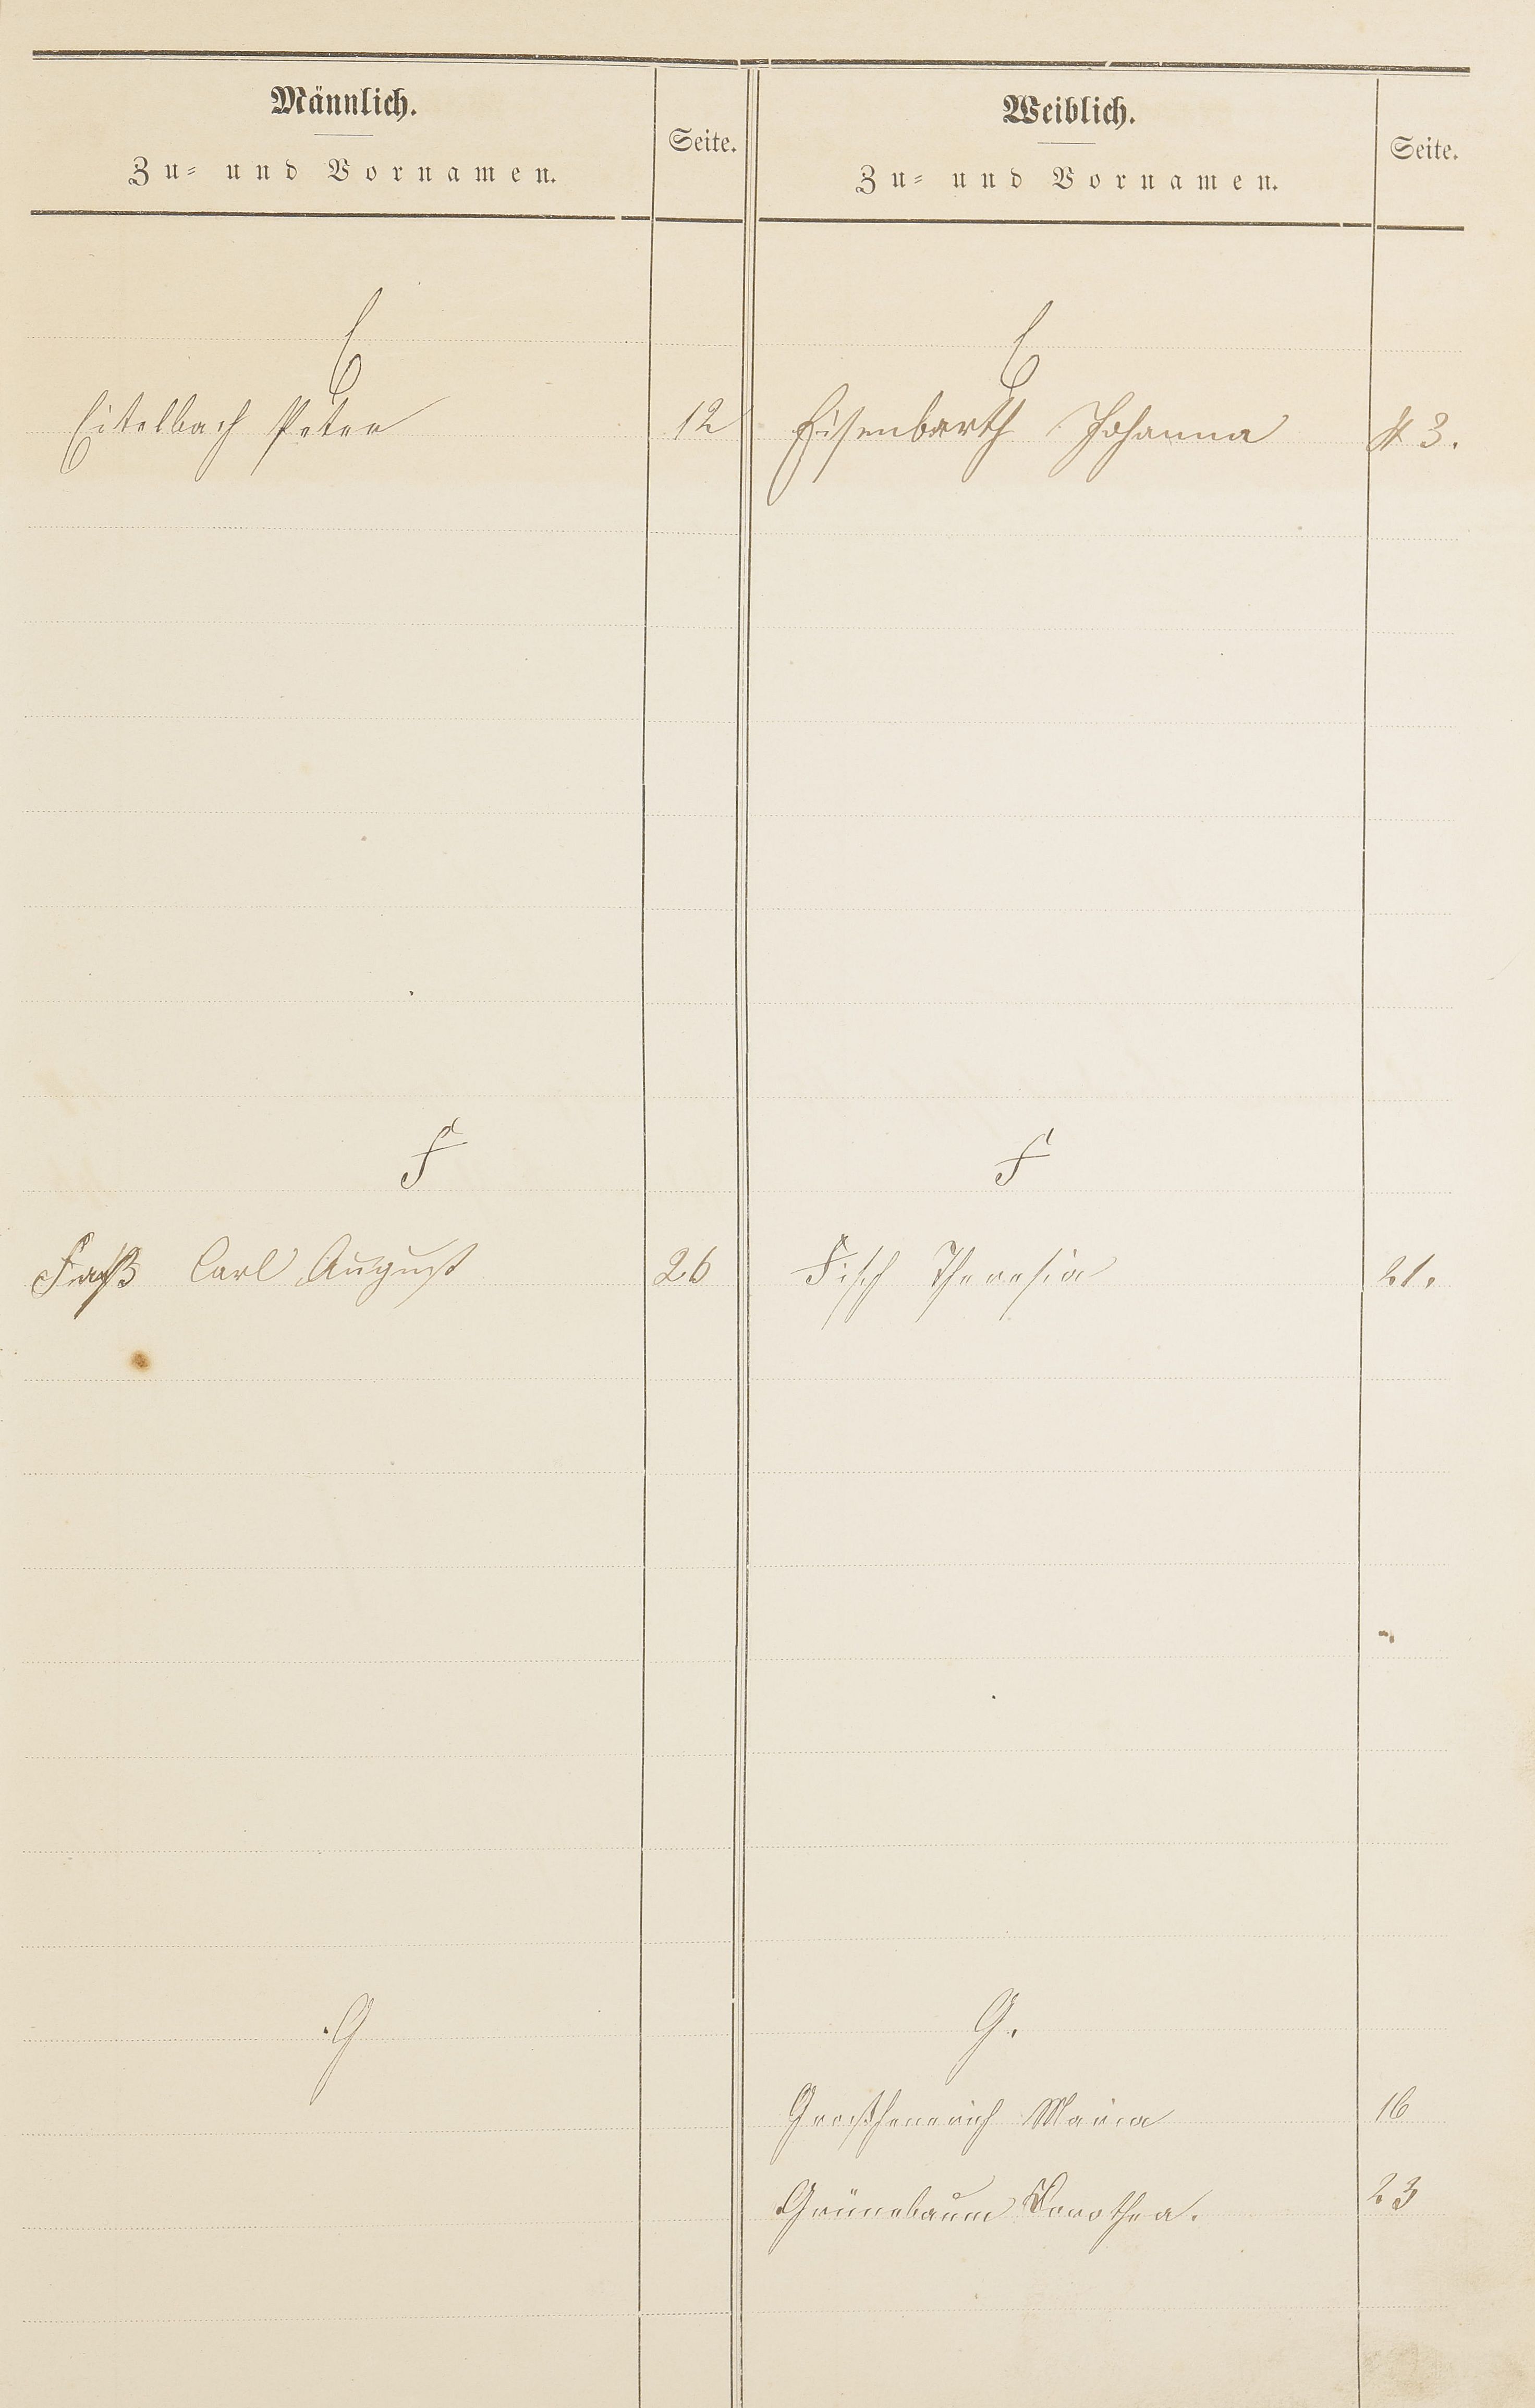 Männlich.
Zu- und Vornamen.
Seite.
Weiblich.
Zu- und Vornamen.
Seite.
E
E
Eitelbach Peter 12
Eisenbarth Johanna 3.
F
F
Carl August 26
Fisch Theresia 21.
G
G.
Großhenrich Maria 16
Grünebaum Dorothea. 23